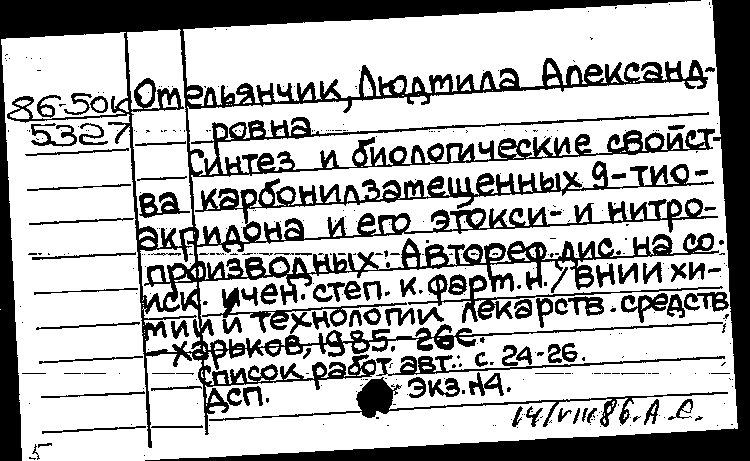 86-50к
5327
Отельянчик, Людмила Александ-
ровна.
Синтез и биологические свойст-
ва карбонилзамещенных 9-тио-
акридона и его этокси- и нитро-
производных: Автореф. дис. на со-
иск. учен. степ. к. фарт. н. / ВНИИ хи-
мии и технологии лекарств. средств
-Харьков, 1985. -26с.
Список работ авт.: с. 24-26.
ДСП. Экз. №4.
14/VIII 86. А. С.
5